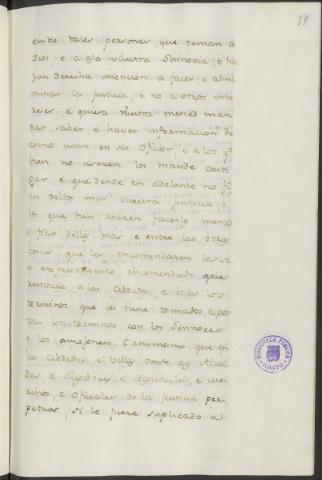 entre tales personas que teman a
Dios, e a la vuestra Sennoria, e ha
yan derecha intencion a facer e admi
nistrar la Justicia, e no a otros inte
reses, e quiera vuestra merced man
dar saber e haver informacion de
como usan en sus Oficios e a los q.e
bien no usaren los mande casti
gar, e que dende en adelante no fi
en dellos mas vuestra Justicia e
los que bien usaren facerles merced
e fiar dellos mas e entre las otras
cosas que les encomendaren les sea
a expresamente encomendado que
restituia a las Cibdades, e Villas los
terminos que les tiene tomados, e par
tan los terminos con los Sennores
e los amojonen. Ansimismo que en
las Cibdades, e Villas donde ay Alcal
des, e Regidores, e Alguaciles, e Me
rinos, e Oficiales de la Justicia per
petuos, si le fuere suplicado a
BIBLIOTECA PUBLICA
TOLEDO